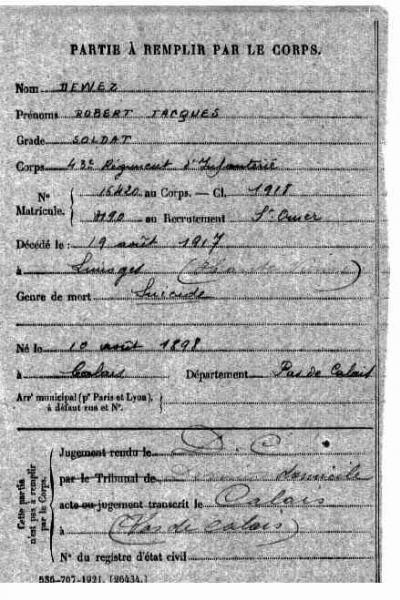 PARTIE À REMPLIR PAR LE CORPS.
Nom DEWEZ
Prénoms ROBERT JACQUES
Grade SOLDAT
Corps 43e Régiment d'Infanterie
No Matricule. { 15420 au Corps. — Cl. 1918
au Recrutement St Omer
Décédé le : 19 août 1917
à Limoges (Haute Vienne)
Genre de mort Suicide
Né le 10 août 1898
à Calais Département Pas de Calais
Arrt municipal (pr Paris et Lyon), à défaut rue et No. {
Cette partie n'est pas à remplir par le Corps. {
Jugement rendu le D. C.
par le Tribunal de domicile
acte ou jugement transcrit le Calais
à (Pas de Calais)
No du registre d'état civil
536-707-1921. [26434.]